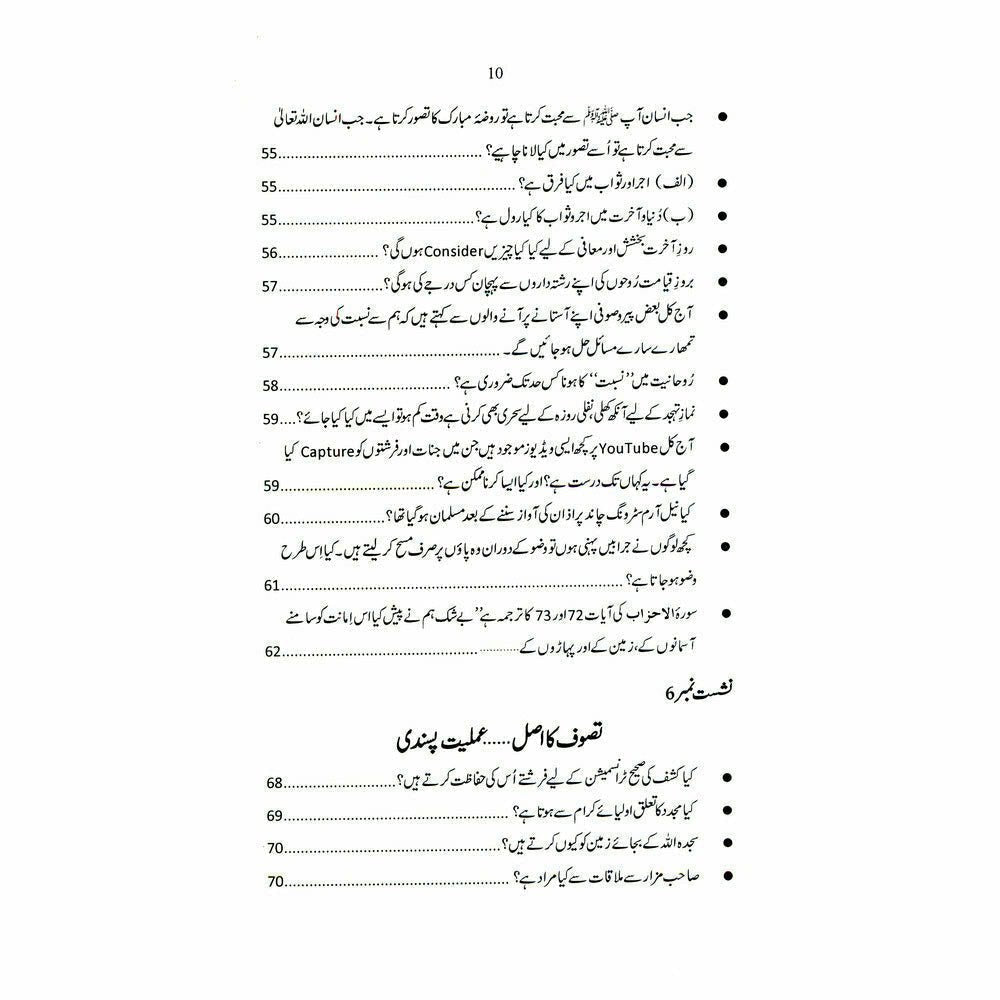 10
● جب انسان آپ ﷺ سے محبت کرتا ہے تو روضۂ مبارک کا تصور کرتا ہے۔ جب انسان اللہ تعالیٰ
سے محبت کرتا ہے تو اُسے تصور میں کیا لانا چاہیے؟ ................................ 55
● (الف) اجر اور ثواب میں کیا فرق ہے؟ ................................ 55
● (ب) دُنیا و آخرت میں اجر و ثواب کا کیا رول ہے؟ ................................ 55
● روزِ آخرت بخشش اور معافی کے لیے کیا کیا چیزیں Consider ہوں گی؟ ........................ 56
● بروزِ قیامت رُوحوں کی اپنے رشتہ داروں سے پہچان کس درجے کی ہو گی؟ ........................ 57
● آج کل بعض پیر و صوفی اپنے آستانے پر آنے والوں سے کہتے ہیں کہ ہم سے نسبت کی وجہ سے
تمھارے سارے مسائل حل ہو جائیں گے۔ ................................ 57
● رُوحانیت میں ’’نسبت‘‘ کا ہونا کس حد تک ضروری ہے؟ ................................ 58
● نمازِ تہجد کے لیے آنکھ کھلی، نفلی روزہ کے لیے سحری بھی کرنی ہے وقت کم ہو تو ایسے میں کیا کیا جائے؟ .... 59
● آج کل YouTube پر کچھ ایسی ویڈیوز موجود ہیں جن میں جنات اور فرشتوں کو Capture کیا
گیا ہے۔ یہ کہاں تک درست ہے؟ اور کیا ایسا کرنا ممکن ہے؟ ................................ 59
● کیا نیل آرم سٹرونگ چاند پر اذان کی آواز سننے کے بعد مسلمان ہو گیا تھا؟ ........................ 60
● کچھ لوگوں نے جرابیں پہنی ہوں تو وضو کے دوران وہ پاؤں پر صرف مسح کر لیتے ہیں۔ کیا اِس طرح
وضو ہو جاتا ہے؟ ................................ 61
● سورۃ الاحزاب کی آیات 72 اور 73 کا ترجمہ ہے ’’بے شک ہم نے پیش کیا اس اِمانت کو سامنے
آسمانوں کے، زمین کے اور پہاڑوں کے ................................ 62
نشست نمبر 6
تصوف کا اصل ...... عملیت پسندی
● کیا کشف کی صحیح ٹرانسمیشن کے لیے فرشتے اُس کی حفاظت کرتے ہیں؟ ........................ 68
● کیا مجدد کا تعلق اولیائے کرام سے ہوتا ہے؟ ................................ 69
● سجدہ اللہ کے بجائے زمین کو کیوں کرتے ہیں؟ ................................ 70
● صاحب مزار سے ملاقات سے کیا مراد ہے؟ ................................ 70